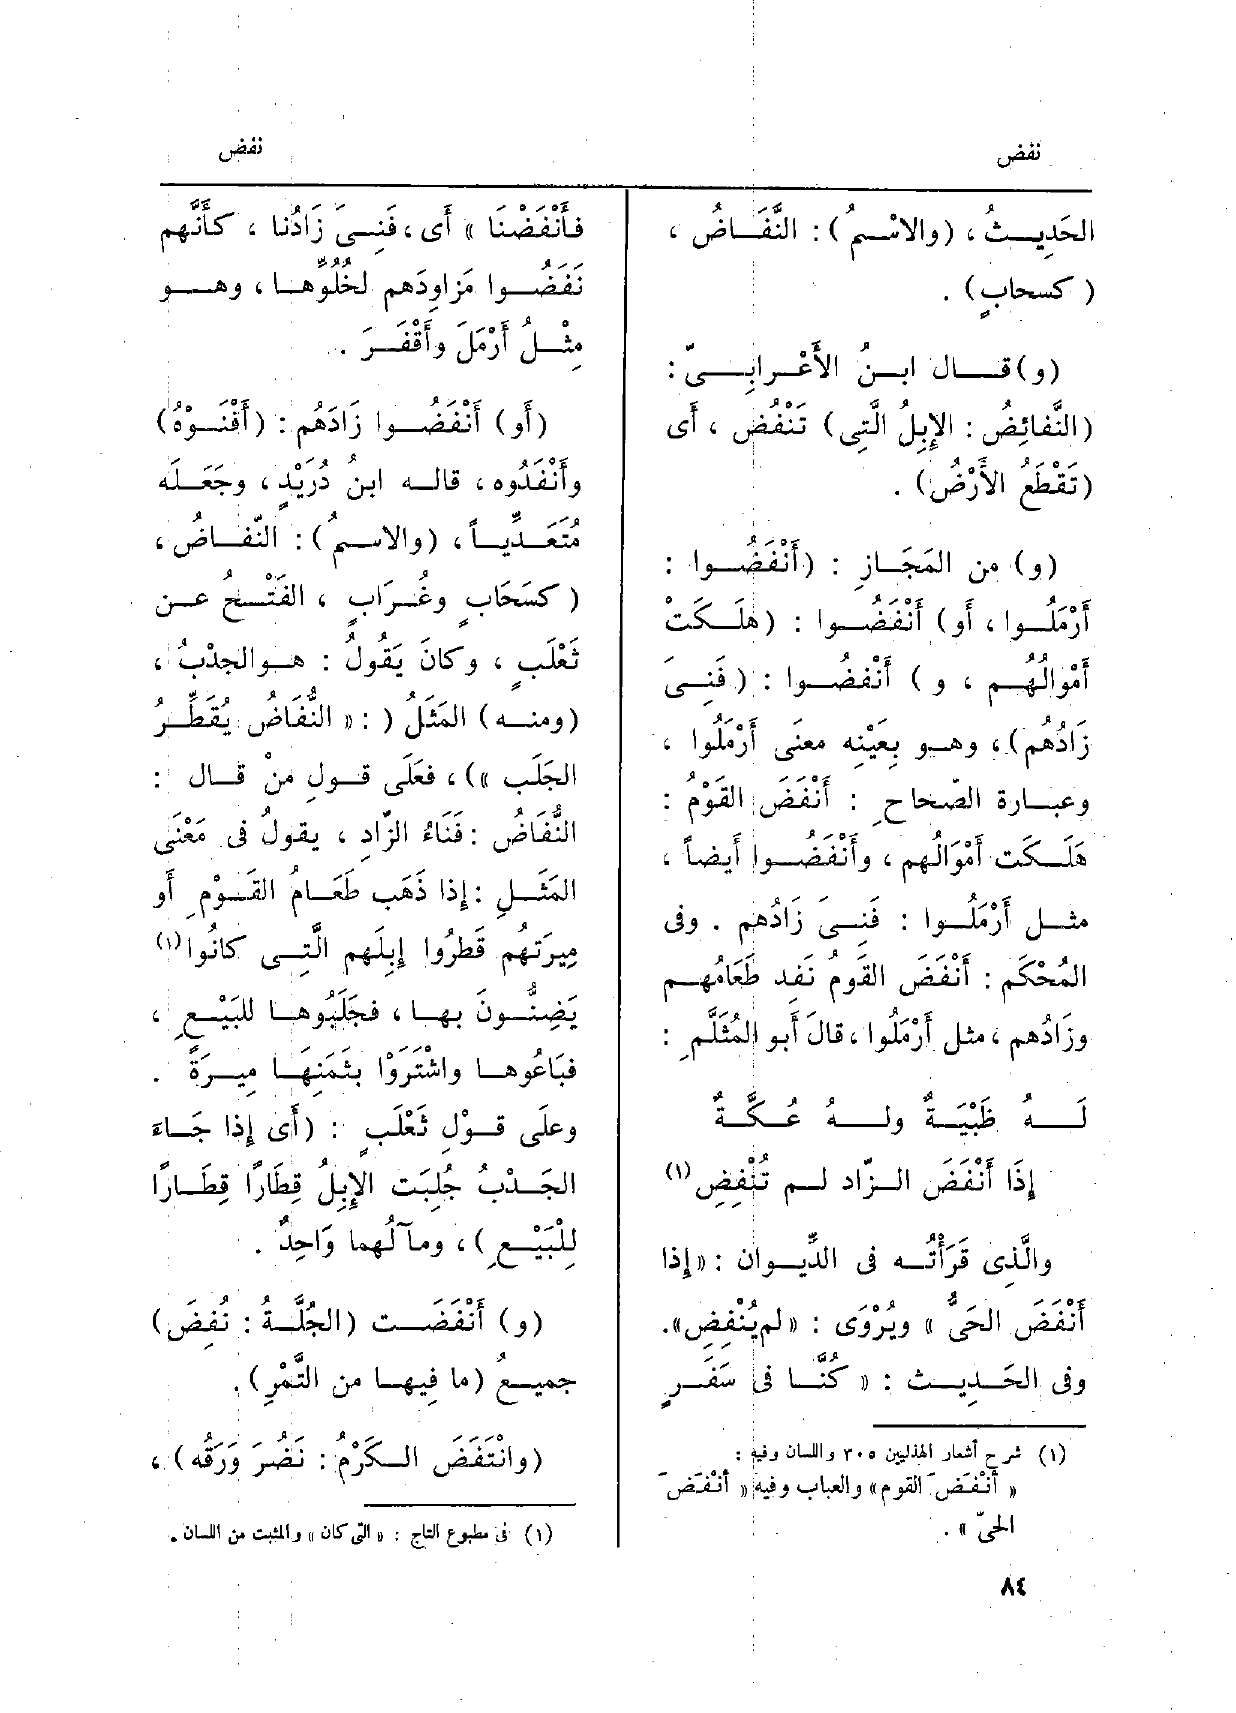 نفض
نفض
الحَدِيثُ، (والاسْمُ): النَّفَاضُ،
(كسحابٍ).
(و) قال ابنُ الأَعْرابِىّ:
(النَّفائِضُ: الإِبِلُ الَّتِى) تَنْفُض، أَى
(تَقْطَعُ الأَرْضُ).
(و) من المَجَازِ: (أَنْفَضُوا:
أَرْمَلُوا، أَو) أَنْفَضُوا: (هَلَكَتْ
أَمْوالُهُم، و) أَنْفَضُوا: (فَنِىَ
زَادُهُم)، وهو بِعَيْنِه معنى أَرْمَلُوا،
وعبارة الصّحاحِ: أَنْفَضَ القَوْمُ:
هَلَكَت أَمْوَالُهم، وأَنْفَضُوا أَيضاً،
مثل أَرْمَلُوا: فَنِىَ زَادُهم. وفى
المُحْكَم: أَنْفَضَ القَومُ نَفد طَعَامُهم
وزَادُهم، مثل أَرْمَلُوا، قالَ أَبو المُثَلَّمِ:
لَهُ ظَبْيَةٌ ولهُ عُكَّةٌ
إِذَا أَنْفَضَ الزّاد لم تُنْفِضِ (١)
والَّذِى قَرَأْتُه فى الدِّيوان: «إِذا
أَنْفَضَ الحَىُّ» ويُرْوَى: «لم يُنْفِضِ».
وفى الحَدِيث: «كُنَّا فى سَفَرٍ
(١) شرح أشعار الهذليين ٣٠٥ واللسان وفيه:
«أَنْفَضَ القوم» والعباب وفيه «أنْفَضَ
الحىّ».
فأَنْفَضْنَا» أَى، فَنِىَ زَادُنا، كأَنَّهم
نَفَضُوا مَزاوِدَهم لخُلُوِّها، وهو
مِثْلُ أَرْمَلَ وأَقْفَرَ.
(أَو) أَنْفَضُوا زَادَهُم: (أَفْنَوْهُ)
وأَنْفَدُوه، قاله ابنُ دُرَيْدٍ، وجَعَلَه
مُتَعَدِّياً، (والاسمُ): النّفاضُ،
(كسَحَابٍ وغُرَابٍ، الفَتْحُ عن
ثَعْلَبٍ، وكانَ يَقُولُ: هو الجدْبُ،
(ومنه) المَثَلُ (: «النُّفَاضُ يُقَطِّرُ
الجَلَب»)، فعَلَى قولِ منْ قال:
النُّفَاضُ: فَنَاءُ الزّادِ، يقولُ فى مَعْنَى
المَثَلِ: إِذا ذَهَب طَعَامُ القَوْمِ أَو
مِيرَتُهم قَطرُوا إِبِلَهم الَّتِى كانُوا (١)
يَضِنُّونَ بها، فجَلَبُوها للبَيْعِ،
فبَاعُوها واشْتَرَوْا بثَمَنِها مِيرَةً.
وعلَى قولِ ثَعْلَبٍ: (أَى إِذا جَاءَ
الجَدْبُ جُلِبَت الإِبِلُ قِطَارًا قِطَارًا
لِلْبَيْعِ)، ومآلُهما وَاحِدٌ.
(و) أَنْفَضَت (الجُلَّةُ: نُفِضَ)
جميعُ (ما فِيها من التَّمْرِ).
(وانْتَفَضَ الكَرْمُ: نَضُرَ وَرَقُه)،
(١) فى مطبوع التاج: «التى كان» والمثبت من اللسان.
٨٤